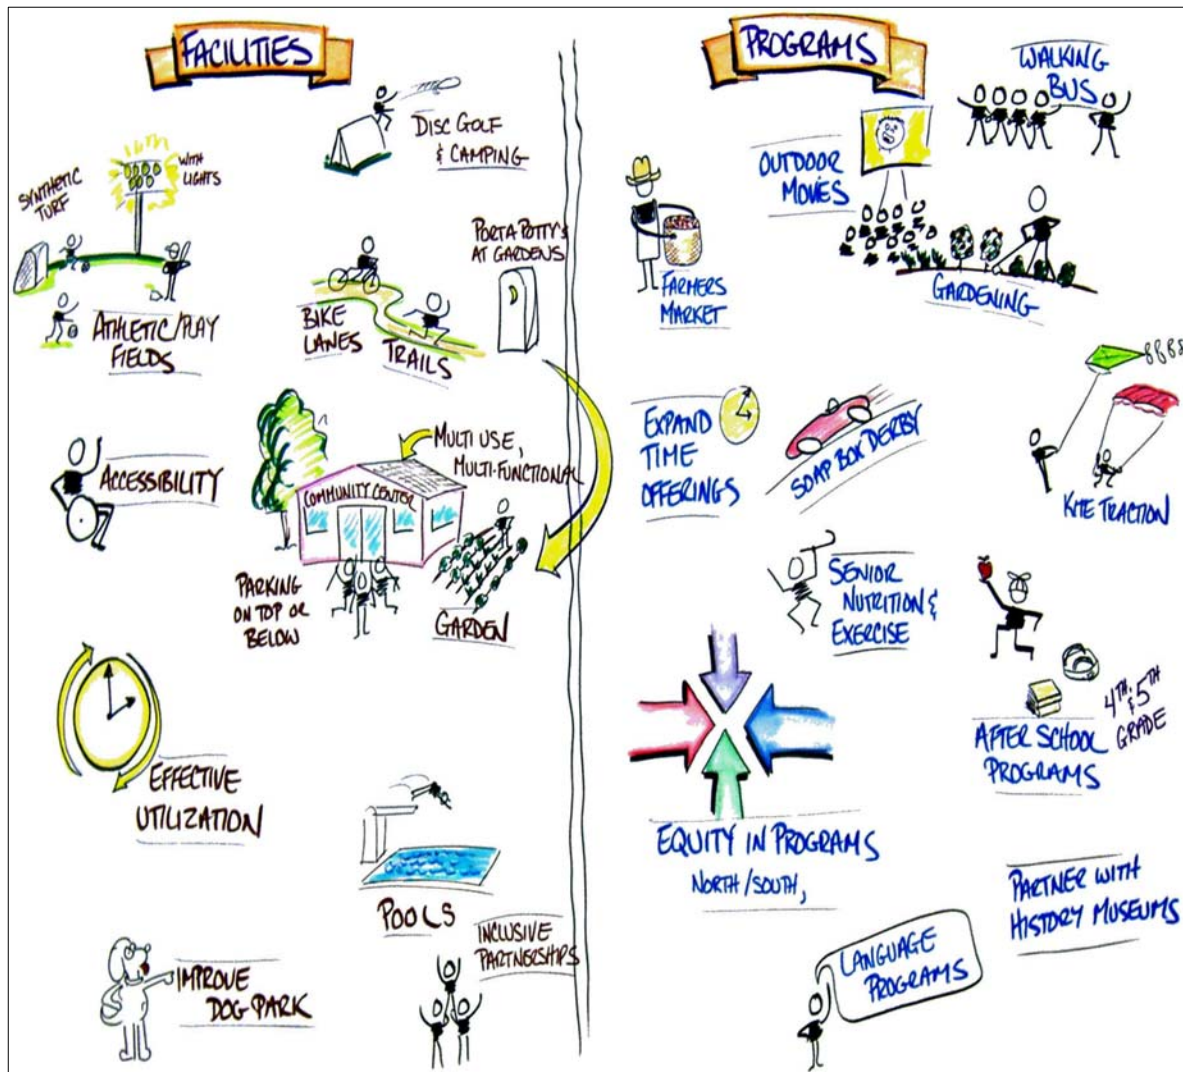 FACILITIES
DISC GOLF
& CAMPING
SYNTHETIC
TURF
WITH
LIGHTS
ATHLETIC/PLAY
FIELDS
BIKE
LANES
TRAILS
PORTA POTTY'S
AT GARDENS
ACCESSIBILITY
MULTI USE,
MULTI-FUNCTIONAL
COMMUNITY CENTER
PARKING
ON TOP OR
BELOW
GARDEN
EFFECTIVE
UTILIZATION
POOLS
IMPROVE
DOG PARK
INCLUSIVE
PARTNERSHIPS
PROGRAMS
WALKING
BUS
OUTDOOR
MOVIES
FARMERS
MARKET
GARDENING
EXPAND
TIME
OFFERINGS
SOAP BOX DERBY
KITE TRACTION
SENIOR
NUTRITION &
EXERCISE
4TH & 5TH
GRADE
AFTER SCHOOL
PROGRAMS
EQUITY IN PROGRAMS
NORTH/SOUTH,
PARTNER WITH
HISTORY MUSEUMS
LANGUAGE
PROGRAMS